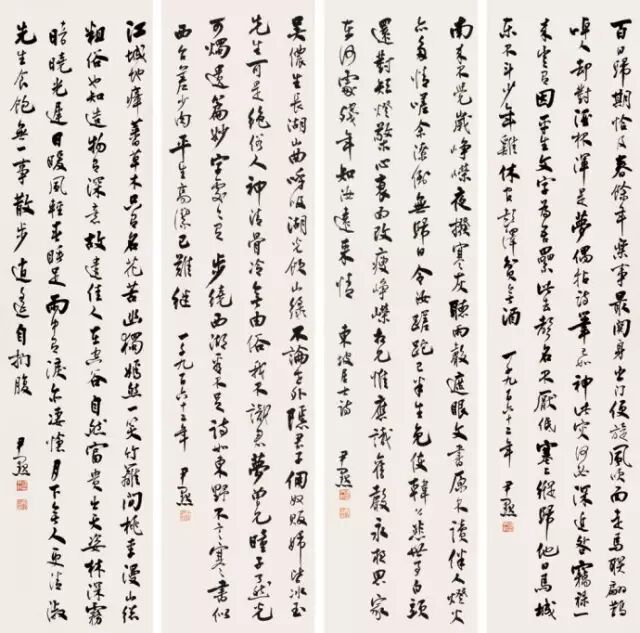 百日歸期恰及春餘年樂事最關身出門便旋風吹面走馬聯翩鵲
啅人却對酒杯渾是夢偶拈詩筆已如神此災何必深追咎竊祿從
來豈有因平生文字為吾累此去聲名不厭低塞上縱歸他日馬城
東不鬥少年雞休官彭澤貧無酒 一千九百六十二年 尹默
南來不覺歲崢嶸夜撥寒灰聽雨聲遮眼文書原不讀伴人燈火
亦多情嗟余潦倒無歸日今汝蹉跎已半生免使韓公悲世事白頭
還對短燈檠心衰面改瘦崢嶸相見惟應識舊聲永夜思家
在何處殘年知汝遠來情 東坡居士詩 尹默
吳儂生長湖山曲呼吸湖光飲山綠不論世外隱君子傭奴販婦皆冰玉
先生可是絕俗人神清骨冷無由俗我不識君夢曾見瞳子了然光
可燭遺篇妙字處處有步繞西湖看不足詩如東野不言寒書似
西臺差少肉平生高潔已難繼 一千九百六十二年 尹默
江城地瘴蕃草木只有名花苦幽獨嫣然一笑竹籬間桃李漫山總
粗俗也知造物有深意故遣佳人在空谷自然富貴出天姿林深霧
暗曉光遲日暖風輕春睡足雨中有淚亦淒愴月下無人更清淑
先生食飽無一事散步逍遙自捫腹 尹默